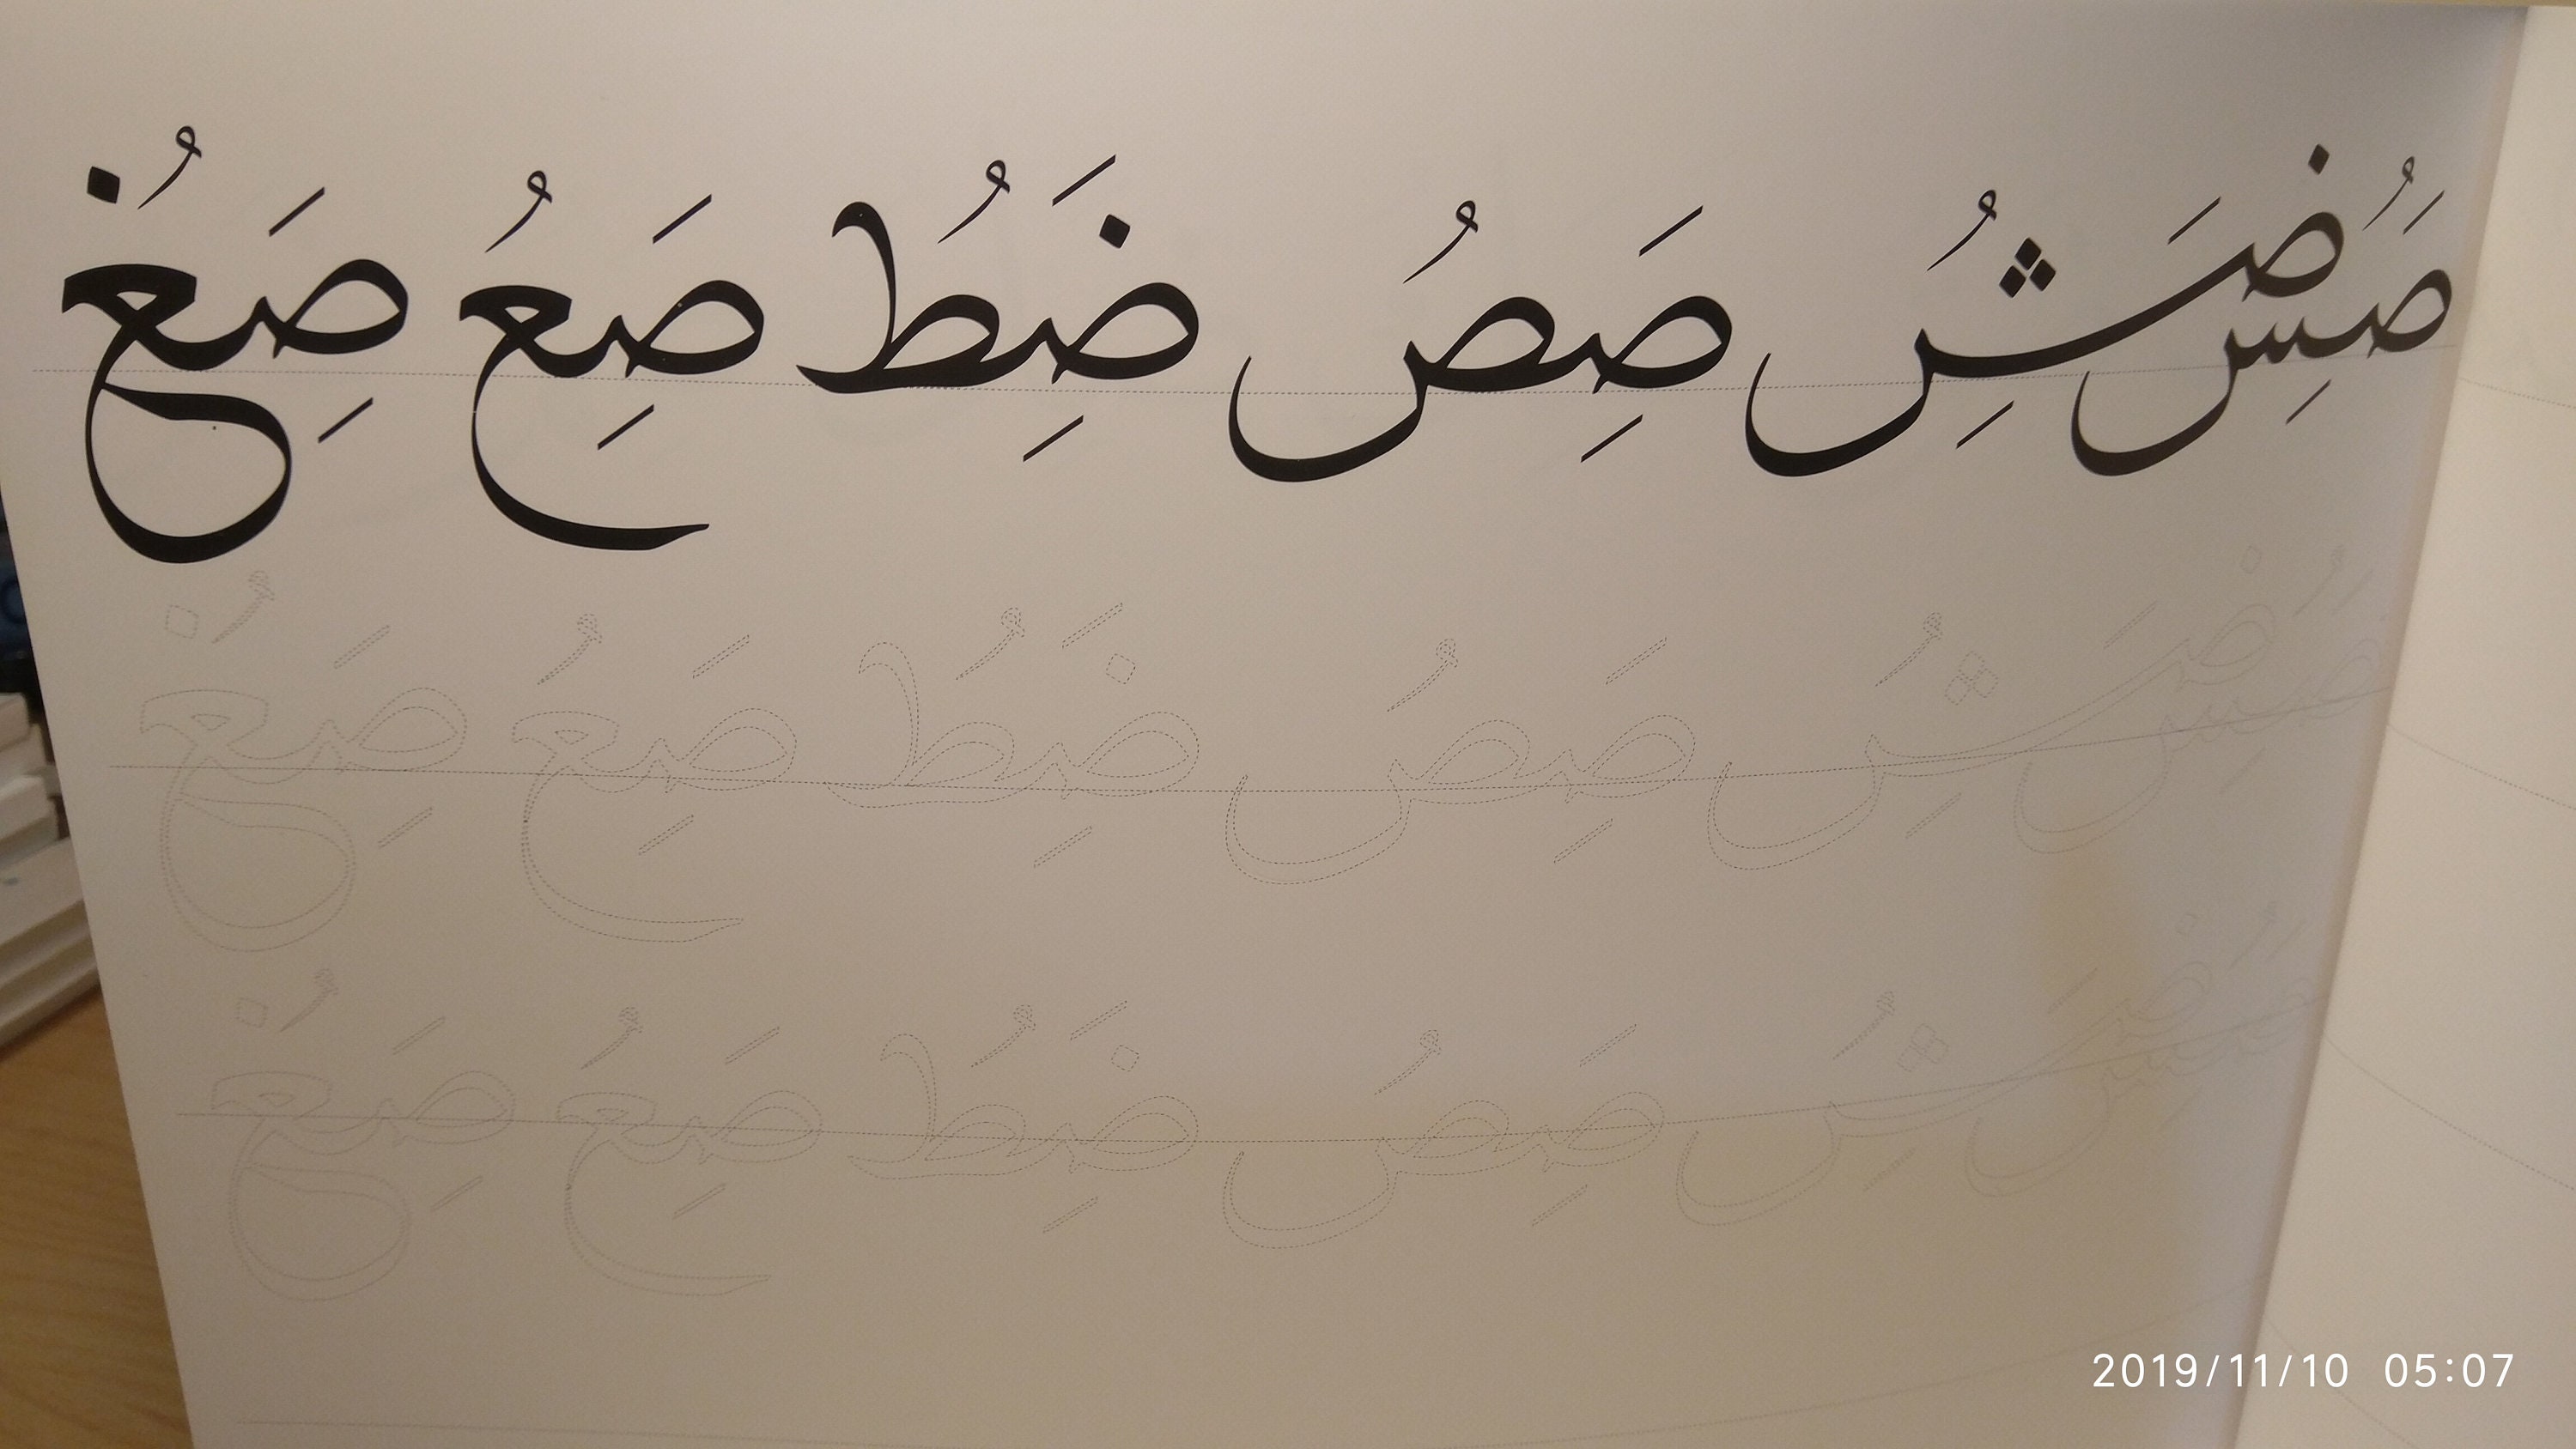 صَسُِ ضَشُِ صَِصُ ضَِطُ صَِعُ صَِغُ
صَسُِ ضَشُِ صَِصُ ضَِطُ صَِعُ صَِغُ
صَسُِ ضَشُِ صَِصُ ضَِطُ صَِعُ صَِغُ
2019/11/10 05:07